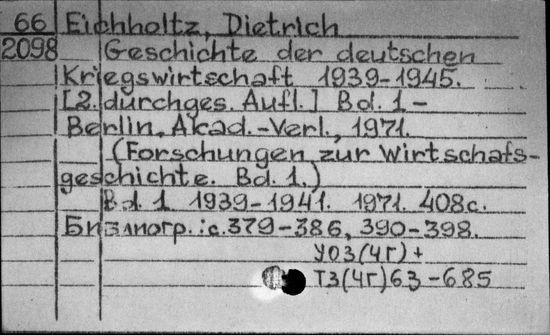 66 Eichholtz, Dietrich
2098 Geschichte der deutschen
Kriegswirtschaft 1939-1945.
[2. durchges. Aufl.] Bd. 1 -
Berlin, Akad.-Verl., 1971.
(Forschungen zur Wirtschafs-
geschichte. Bd. 1.)
Bd. 1 1939-1941. 1971. 408с.
Библиогр.: с. 379-386, 390-398.
У03(4Г) +
Т3(4Г)63-685